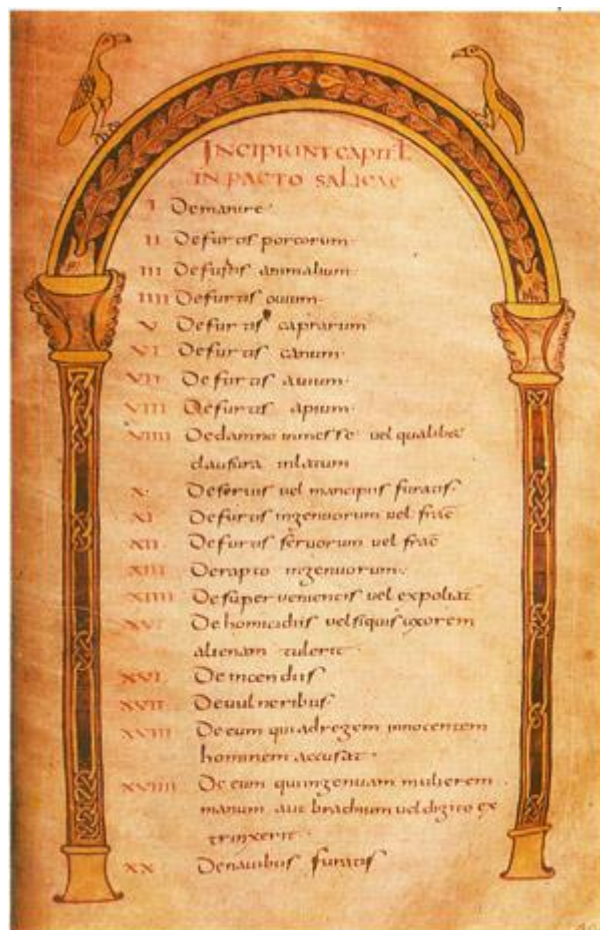 INCIPIUNT CAPITL
IN PACTO SALICAE
I De manire
II De furtis porcorum
III De furtis animalium
IIII De furtis ouium
V De furtis caprarum
VI De furtis canum
VII De furtis auium
VIII De furtis apium
VIIII De damno in messe uel qualibet
clausura inlatum
X De seruis uel mancipiis furatis
XI De furtis ingenuorum uel frac
XII De furtis seruorum uel frac
XIII De rapto ingenuorum
XIIII De super uenientis uel expoliat
XV De homicidiis uel si quis uxorem
alienam tulerit
XVI De incendiis
XVII De uulneribus
XVIII De eum qui ad regem innocentem
hominem accusat
XVIIII De eum qui ingenuam mulierem
manum aut brachium uel digito ex
trinxerit
XX De nauibus furatis